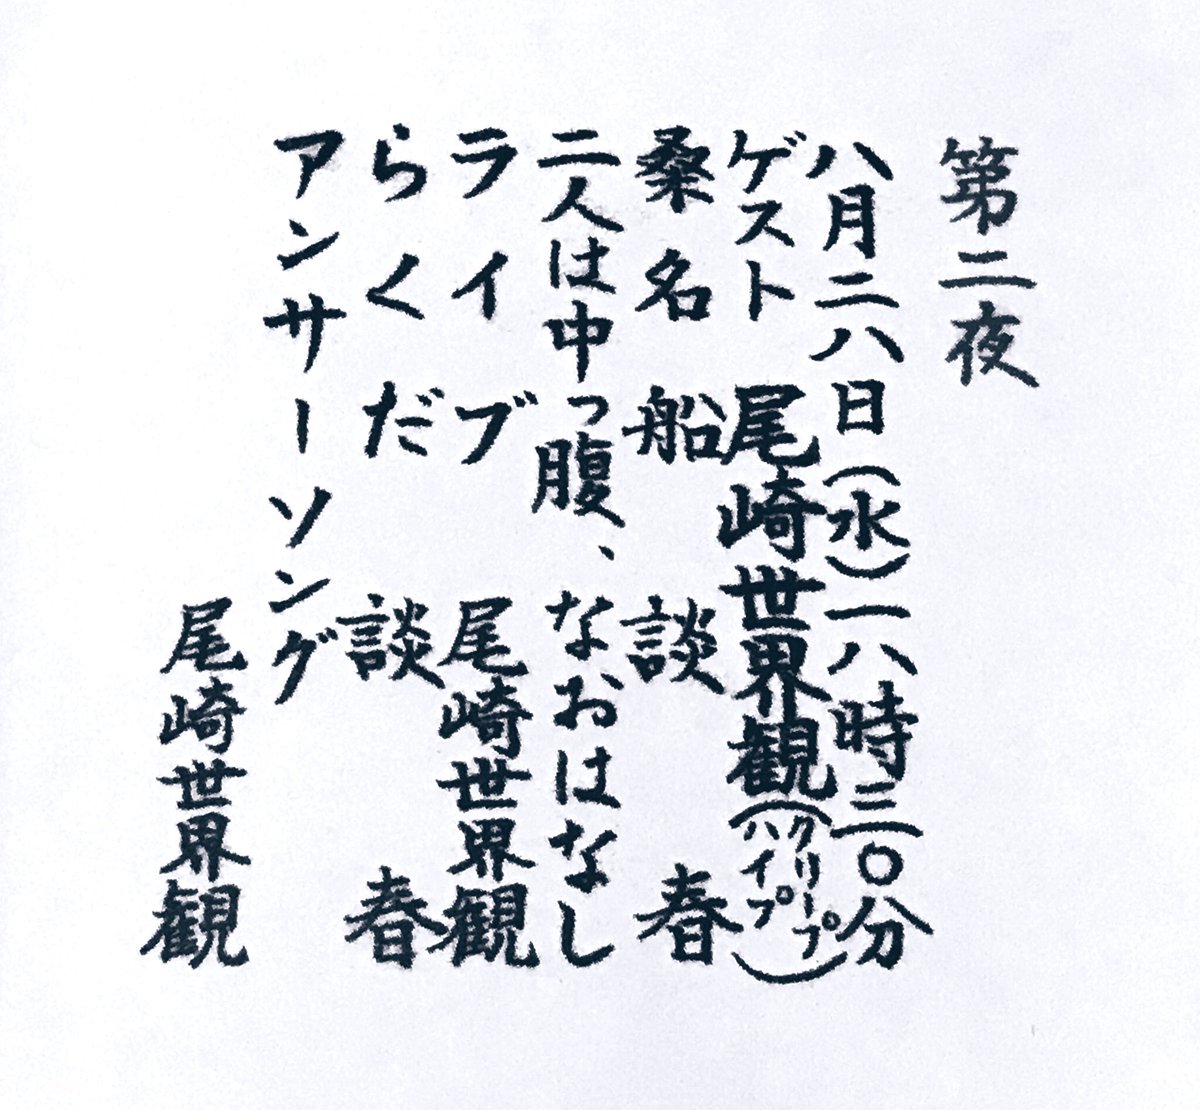 第二夜
八月二八日(水)一八時三〇分
ゲスト 尾崎世界観(クリープハイプ)
桑名船 談春
二人は中っ腹、なおはなし
ライブ 尾崎世界観
らくだ 談春
アンサーソング
尾崎世界観